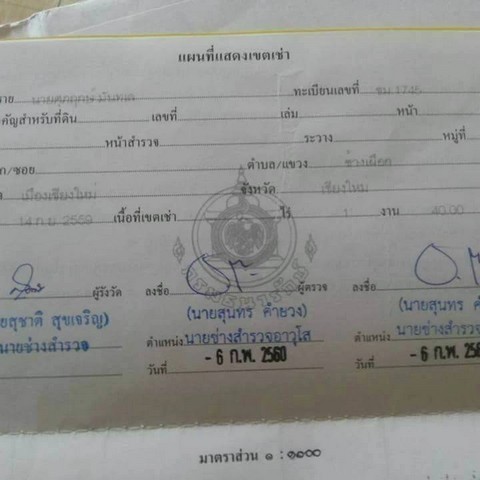 แผนที่แสดงเขตเช่า
ราย นายศุภฤกษ์ มันทล ทะเบียนเลขที่ ชม 1746
คัญสำหรับที่ดิน เลขที่ เล่ม หน้า
หน้าสำรวจ ระวาง หมู่ที่
ก/ซอย ตำบล/แขวง ช้างเผือก
เมืองเชียงใหม่ จังหวัด เชียงใหม่
14 ก.ย. 2559 เนื้อที่เขตเช่า ไร่ 1 งาน 40.00
ผู้รังวัด ลงชื่อ ผู้ตรวจ ลงชื่อ
ยสุชาติ สุขเจริญ) (นายสุนทร คำยวง) (นายสุนทร ค
นายช่างสำรวจ ตำแหน่ง นายช่างสำรวจอาวุโส ตำแหน่ง นายช่างสำรวจ
วันที่ - 6 ก.พ. 2560 วันที่ - 6 ก.พ. 256
กรมธนารักษ์
มาตราส่วน ๑ : ๑๐๐๐